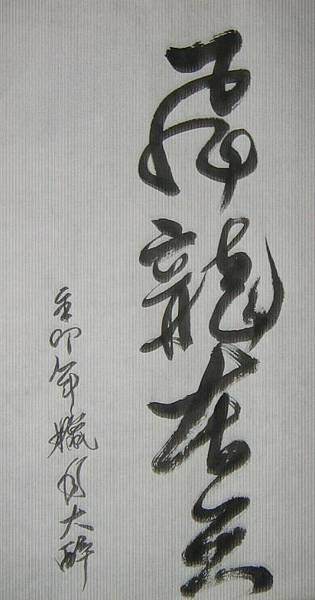 飛龍在天
辛卯年臘月大醉